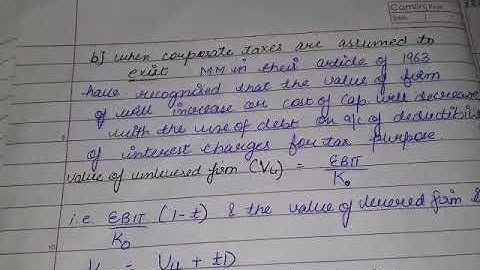 Camlin Page
Date / /
b] when corporate taxes are assumed to
exist MM in their article of 1963
have recognised that the value of firm
of will increase or cost of cap will decrease
with the use of debt on a/c of deductibili
of interest charges for tax purpose.
value of unlevered firm (Vu) = EBIT / Ko
i.e. EBIT / Ko (1-t) & the value of levered firm i
= Vu + tD